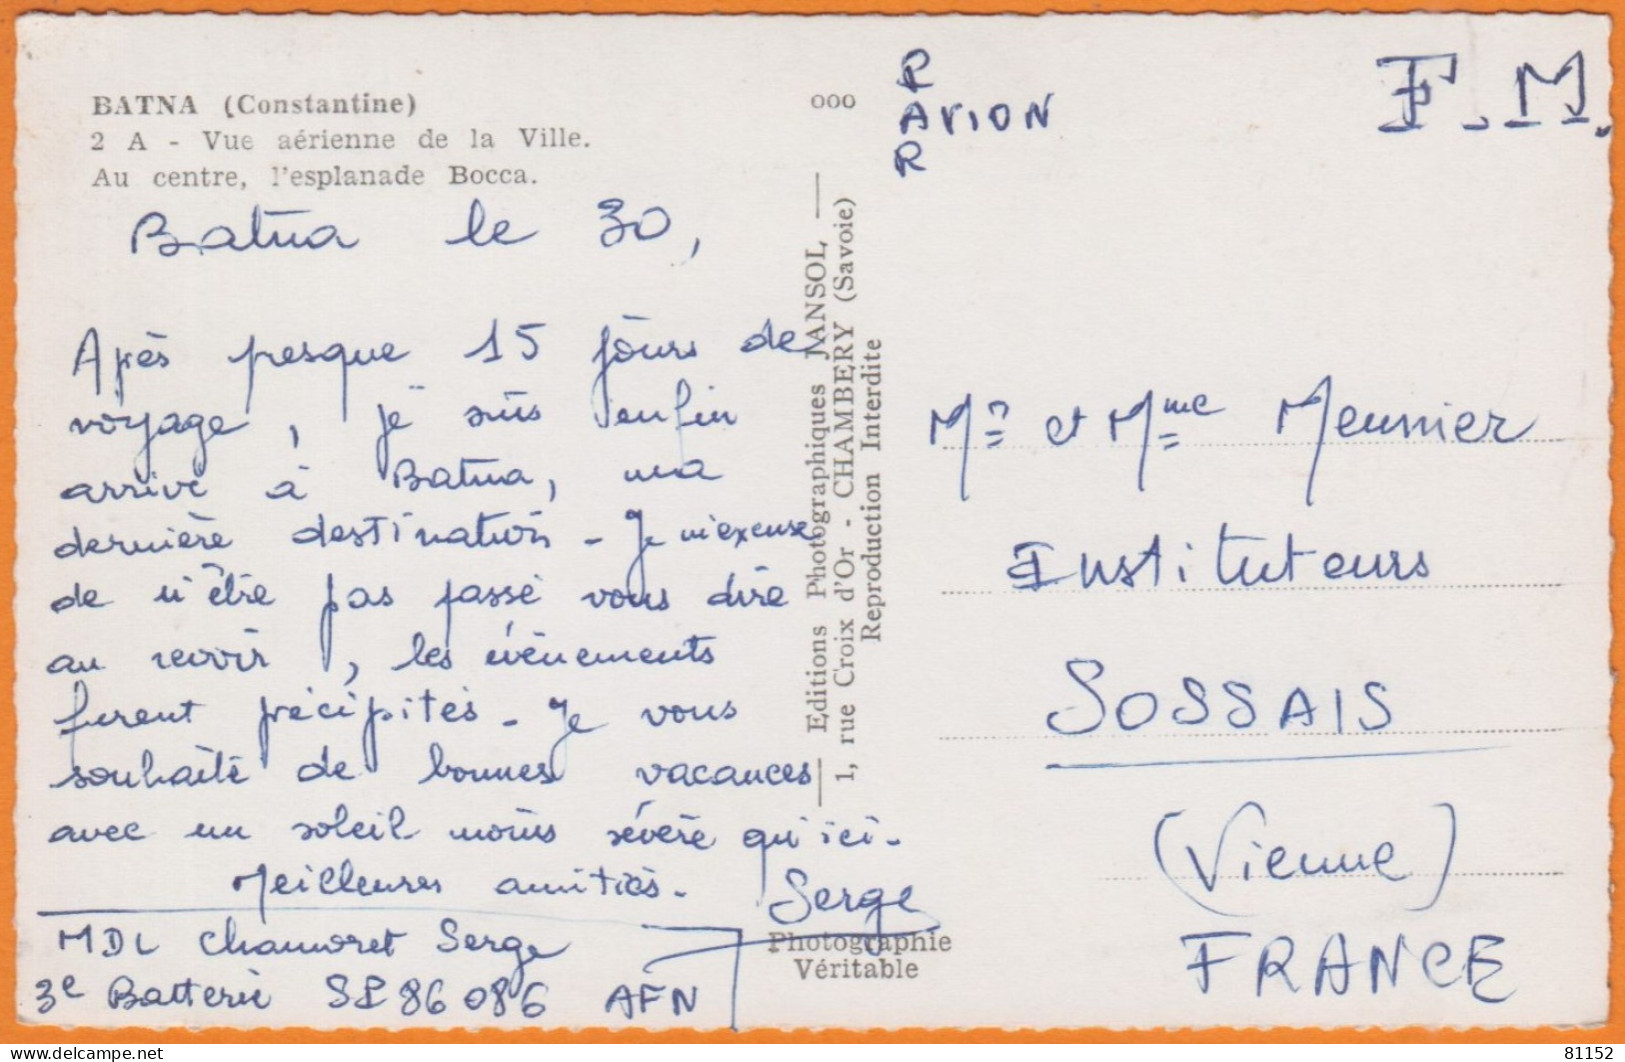 BATNA (Constantine)
2 A - Vue aérienne de la Ville.
Au centre, l'esplanade Bocca.
Batna le 30,
Après presque 15 jours de
voyage, je suis enfin
arrivé à Batna, ma
dernière destination - Je m'excuse
de n'être pas passé vous dire
au revoir, les événements
furent précipités - Je vous
souhaite de bonnes vacances
avec un soleil moins sévère qu'ici -
Meilleures amitiés - Serge
MDL Chamoret Serge
3e Batterie SP 86 086 AFN
ooo
Editions Photographiques JANSOL
1, rue Croix d'Or - CHAMBERY (Savoie)
Reproduction Interdite
Photographie
Véritable
PAR
AVION
F.M.
Mr et Mme Meunier
Instituteurs
SOSSAIS
(Vienne)
FRANCE
delcampe.net
81152